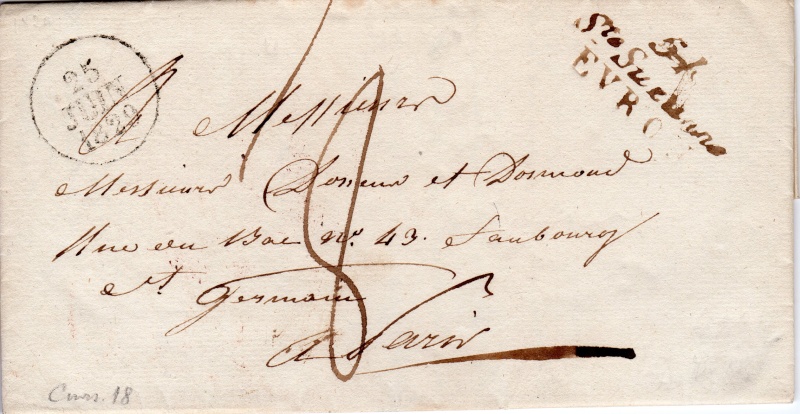 25
JUIN
1829
54
Ste Suzanne
EVRO
A Messieurs
Messieurs et
Rue du Bac no. 43. faubourg
St. Germain
A Paris
Curs. 18